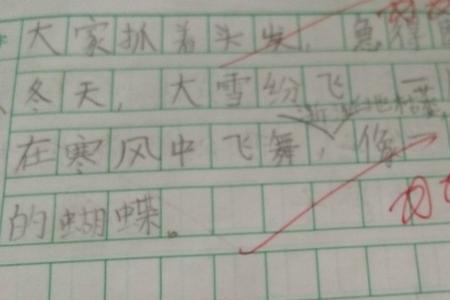 大家抓着头发，急得
冬天，大雪纷飞，一
在寒风中飞舞，像一
的蝴蝶。